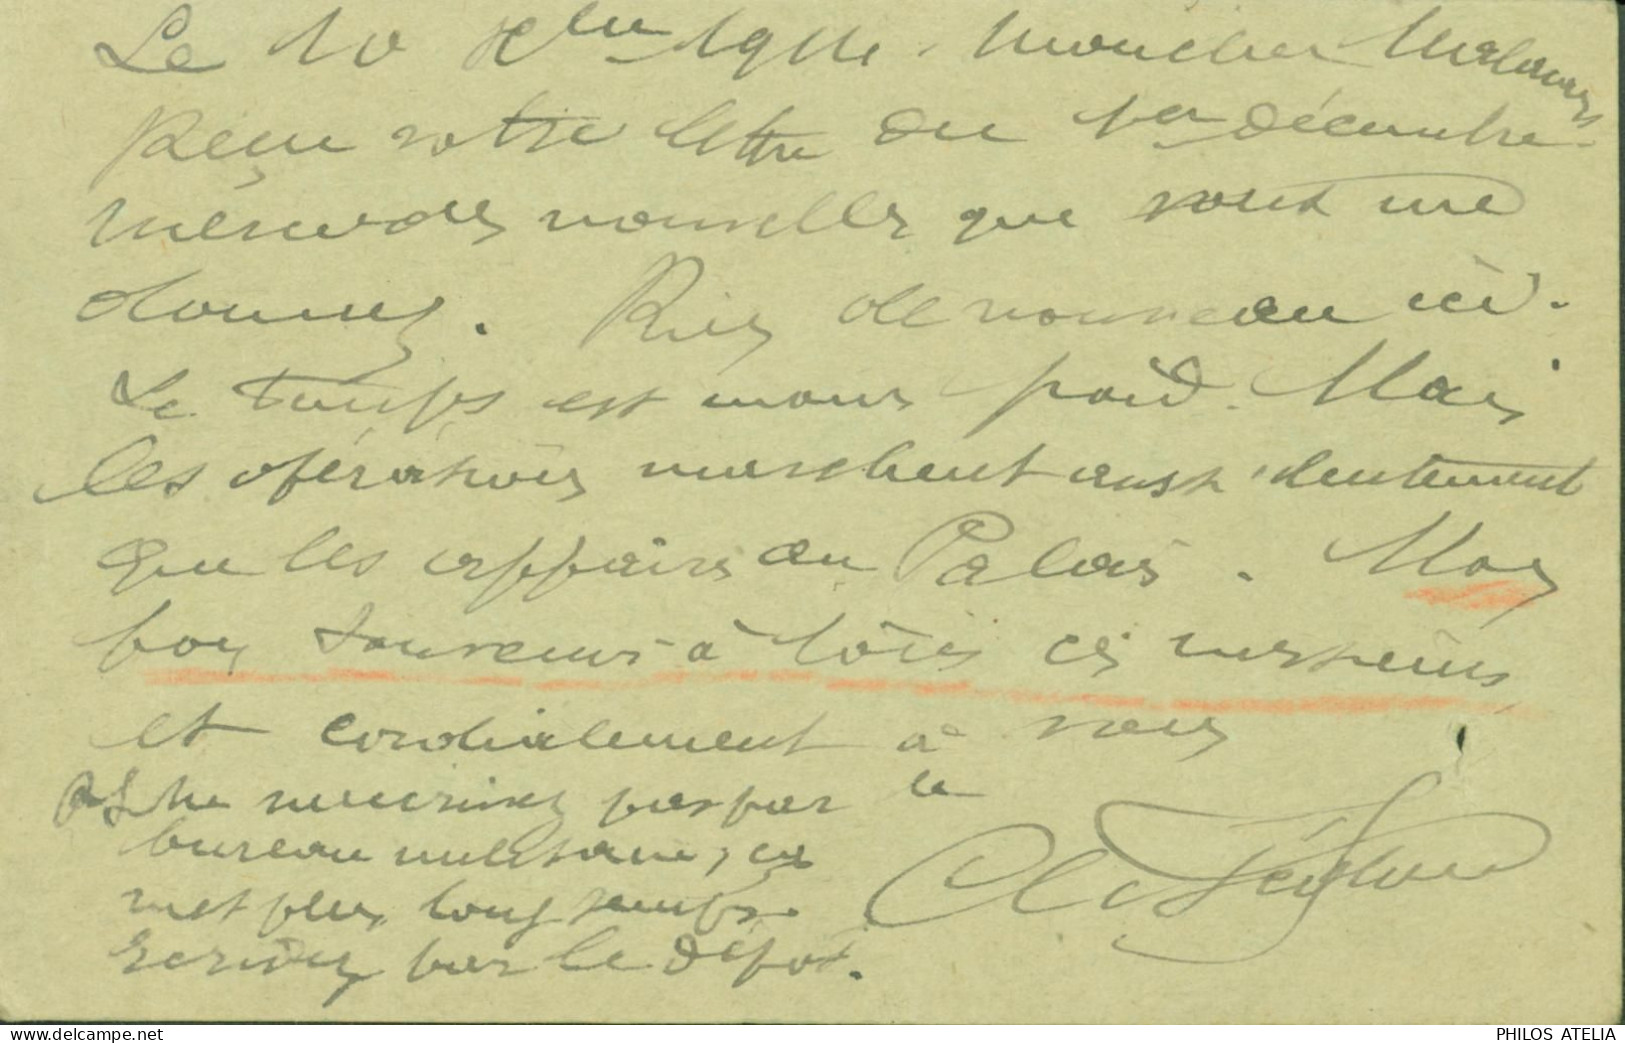 Le 10 Xbre 1914. Mon cher
Reçu votre lettre du 1er décembre.
Merci des nouvelles que vous me
donnez. Rien de nouveau ici.
Le temps est moins froid. Mais
les opérations marchent aussi lentement
que les affaires au Palais. Mon
bon souvenir à tous ces messieurs
et cordialement à vous
PS Ne m'écrivez pas par le
bureau militaire, ça
met plus longtemps.
Ecrivez par le dépôt.
PHILOS ATELIA
www.delcampe.net